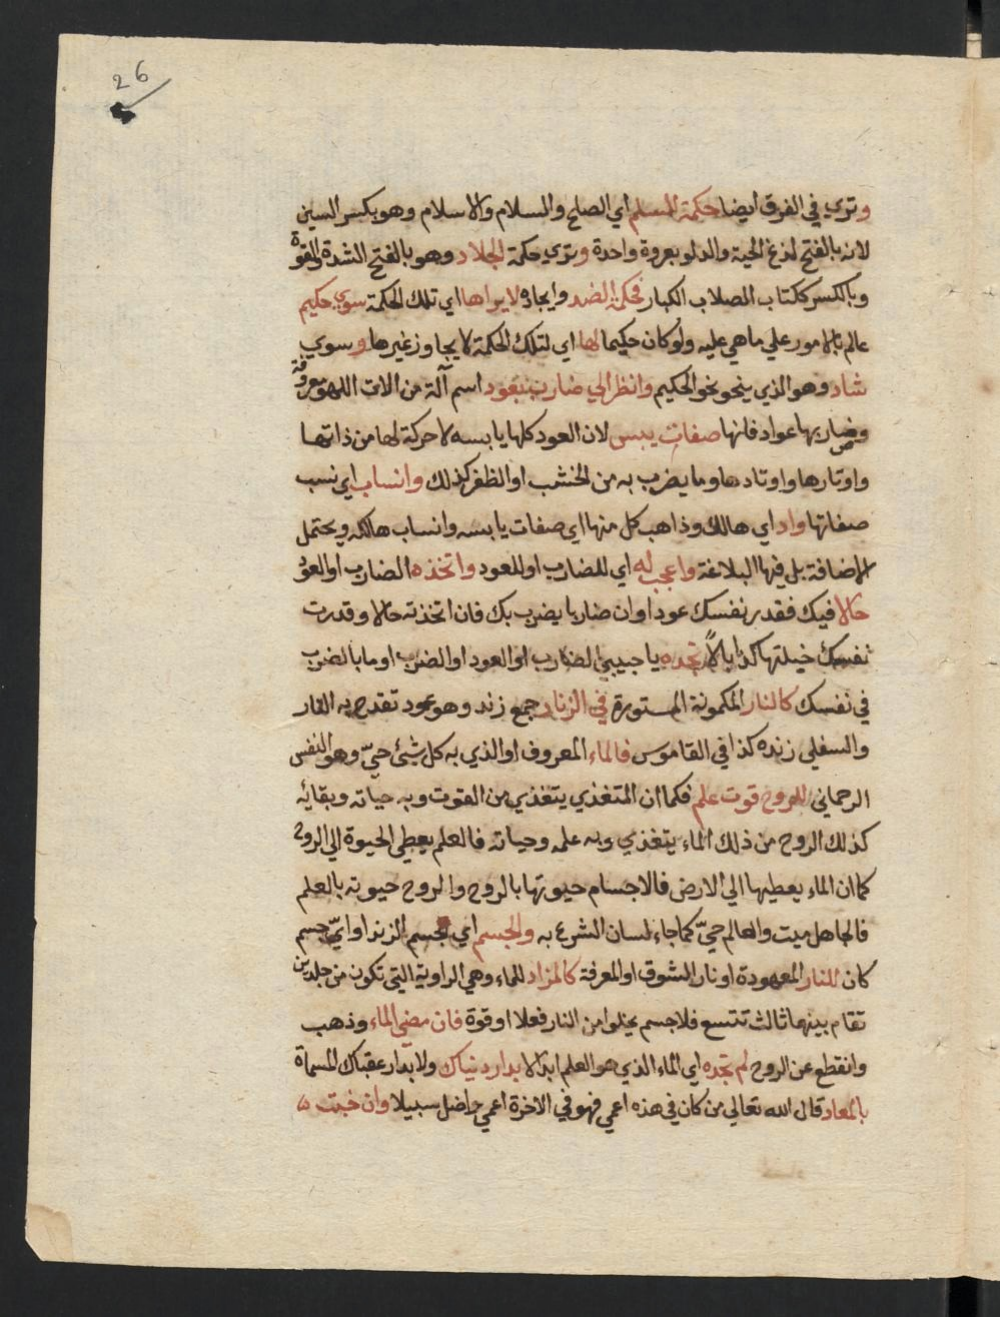 26
وتري في الفرق ايضا حكمة المسلم اي الصلح والسلام والاسلام وهو بكسر السين
لانه بالفتح لدغ الحية والدلو بعروة واحدة وتري حكمة الجلاد وهو بالفتح الشدة والقوة
وبالكسر ككتاب الصلاب الكبار فحكمة الضد وايجاده لا يراها اي تلك الحكمة سوي حكيم
عالم بالامور علي ما هي عليه ولو كان حكيما لها اي لتلك الحكمة لا يجاوز غيرها وسوي
شاد وهو الذي ينحو نحو الحكيم وانظر الي ضارب بعود اسم آلة من الات اللهو معروفة
وضاربها عواد فانها صفات يبس لان العود كلها يابسه لا حركة لها من ذاتها
واوتارها واوتادها وما يضرب به من الخشب او الظفر كذلك وانساب اي نسب
صفاتها واد اي هالك وذاهب كل منها اي صفات يابسه وانساب هالكه ويحتمل
الاضافة بل فيها البلاغة واعجب له اي للضارب او للعود واتخذه الضارب او العود
حالا فيك فقدر نفسك عودا وان ضاربا يضرب بك فان اتخذته حالا وقدرت
نفسك خيلتها كذا بالا تجده يا حبيبي الضارب او العود او الضرب او ما بالضرب
في نفسك كالنار المكمونة المستورة في الزناد جمع زند وهو عود تقدح به النار
والسفلي زنده كذا في القاموس فالماء المعروف او الذي به كل شيئ حيّ وهو النفس
الرحماني للروح قوت علم فكما ان المتغذي يتغذي من القوت وبه حياته وبقائه
كذلك الروح من ذلك الماء يتغذي وبه علمه وحياته فالعلم يعطي الحيوة الي الروح
كما ان الماء يعطيها الي الارض فالاجسام حيوتها بالروح والروح حيوته بالعلم
فالجاهل ميت والعالم حيّ كما جاء لسان الشرع به والجسم اي لجسم الزند او ايّ جسم
كان للنار المعهودة او نار الشوق او المعرفة كالمزاد للماء وهي الراوية التي تكون من جلدين
تقام بينهما ثالث تتسع فلا جسم يخلوا من النار فعلا او قوة فان مضي الماء وذهب
وانقطع عن الروح لم تجده اي الماء الذي هو العلم ابدا لا بدار دنياك ولا بدار عقباك المسماة
بالمعاد قال الله تعالي من كان في هذه اعمي فهو في الاخرة اعمي واضل سبيلا وان خبت